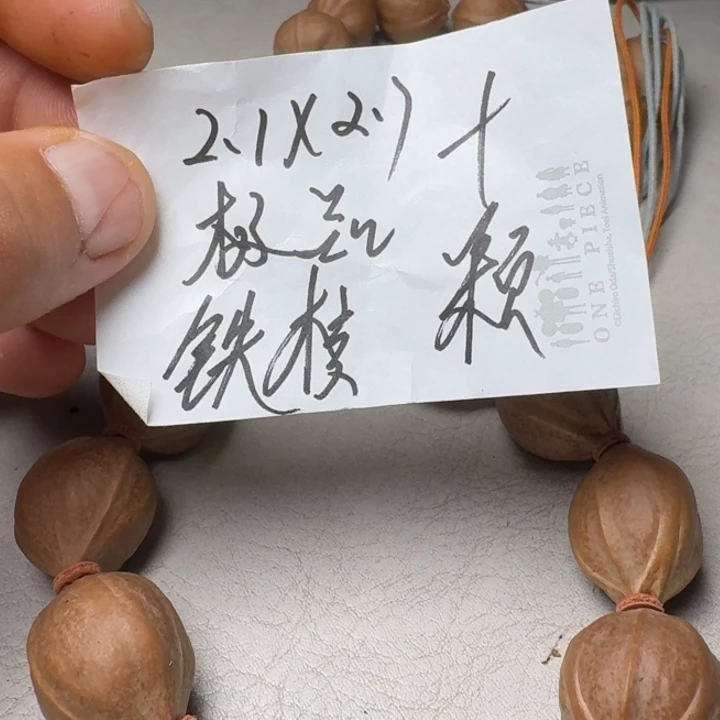 2.1X2.7
极品
铁核
十
颗
ONE PIECE
©Eiichiro Oda/Shueisha, Toei Animation